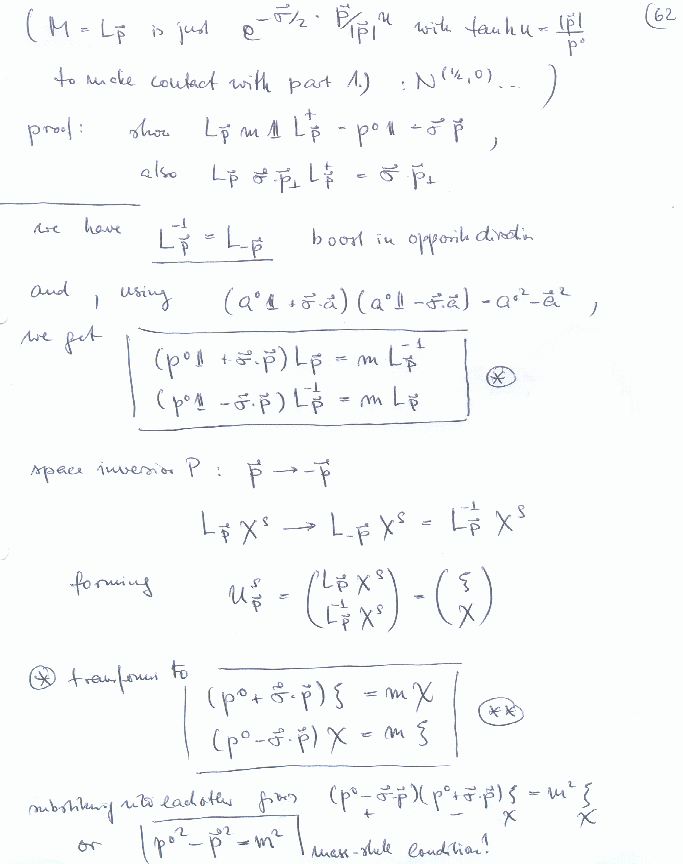 (62
( M = L_p⃗ is just e^{-σ⃗/2 · p⃗/|p⃗| u} with tanh u = |p⃗|/p⁰
to make contact with part 1.) : N^{(½,0)} ... )
proof: show L_p⃗ m 𝟙 L_p⃗^+ = p⁰ 𝟙 + σ⃗ p⃗ ,
also L_p⃗ σ⃗·p⃗_⊥ L_p⃗^+ = σ⃗ p⃗_⊥
we have L_p⃗^{-1} = L_{-p⃗} boost in opposite direction
and , using (a⁰𝟙 + σ⃗·a⃗) (a⁰𝟙 - σ⃗·a⃗) = a⁰² - a⃗² ,
we get
(p⁰𝟙 + σ⃗·p⃗) L_p⃗ = m L_p⃗^{-1}
(p⁰𝟙 - σ⃗·p⃗) L_p⃗^{-1} = m L_p⃗ ⊛
space inversion P : p⃗ → -p⃗
L_p⃗ χ^s → L_{-p⃗} χ^s = L_p⃗^{-1} χ^s
forming u_p⃗^s = (L_p⃗ χ^s / L_p⃗^{-1} χ^s) = (ξ / χ)
⊛ transforms to
(p⁰ + σ⃗·p⃗) ξ = m χ
(p⁰ - σ⃗·p⃗) χ = m ξ (**)
substituting into each other gives (p⁰ - σ⃗·p⃗)(p⁰ + σ⃗·p⃗) ξ = m² ξ
+ - χ χ
or p⁰² - p⃗² = m² mass-shell condition!